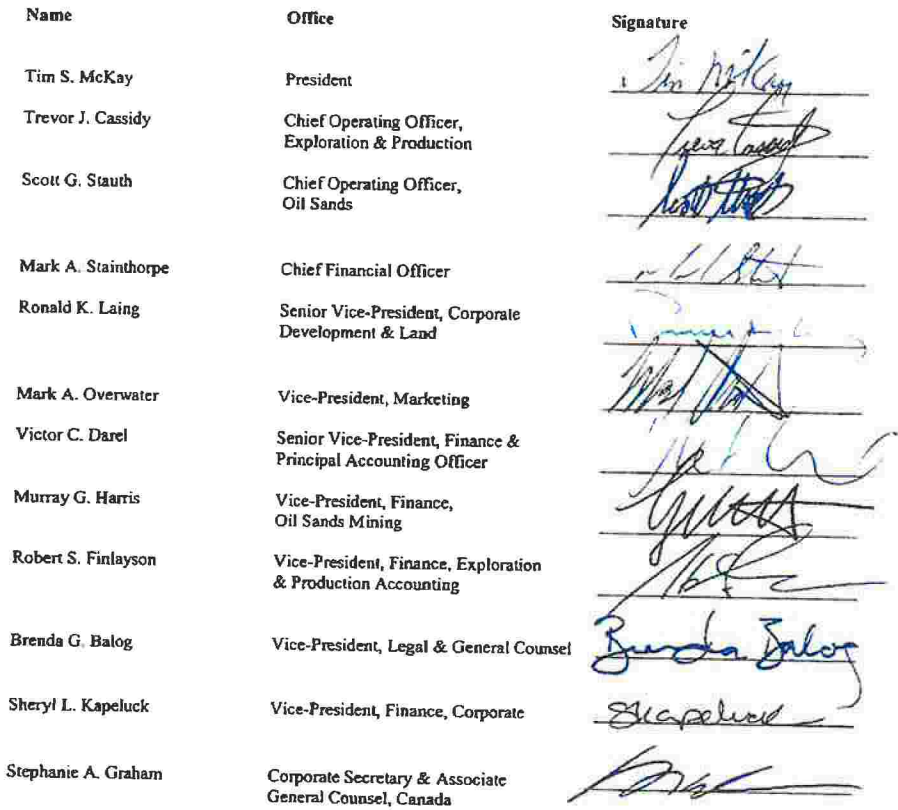 Name Office Signature
Tim S. McKay President Tim McKay
Trevor J. Cassidy Chief Operating Officer,
Exploration & Production
Scott G. Stauth Chief Operating Officer,
Oil Sands
Mark A. Stainthorpe Chief Financial Officer
Ronald K. Laing Senior Vice-President, Corporate
Development & Land
Mark A. Overwater Vice-President, Marketing
Victor C. Darel Senior Vice-President, Finance &
Principal Accounting Officer
Murray G. Harris Vice-President, Finance,
Oil Sands Mining
Robert S. Finlayson Vice-President, Finance, Exploration
& Production Accounting
Brenda G. Balog Vice-President, Legal & General Counsel Brenda Balog
Sheryl L. Kapeluck Vice-President, Finance, Corporate SKapeluck
Stephanie A. Graham Corporate Secretary & Associate
General Counsel, Canada